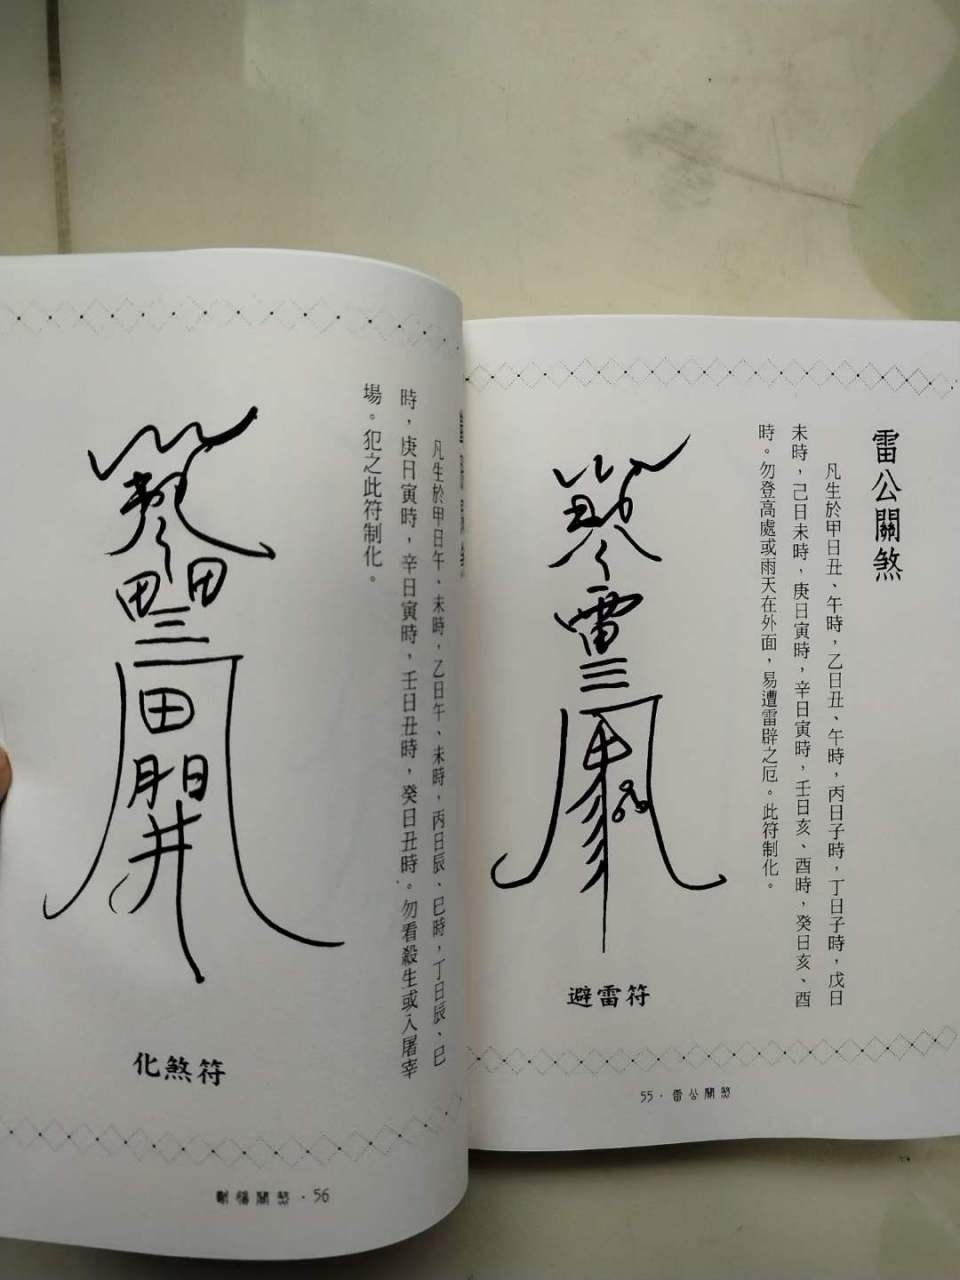 雷公關煞
凡生於甲日丑、午時，乙日丑、午時，丙日子時，丁日子時，戊日
未時，己日未時，庚日寅時，辛日寅時，壬日亥、酉時，癸日亥、酉
時。勿登高處或雨天在外面，易遭雷辟之厄。此符制化。
避雷符
55·雷公關煞
凡生於甲日午、未時，乙日午、未時，丙日辰、巳時，丁日辰、巳
時，庚日寅時，辛日寅時，壬日丑時，癸日丑時。勿看殺生或入屠宰
場。犯之此符制化。
田田
三
田
開
化煞符
關煞·56